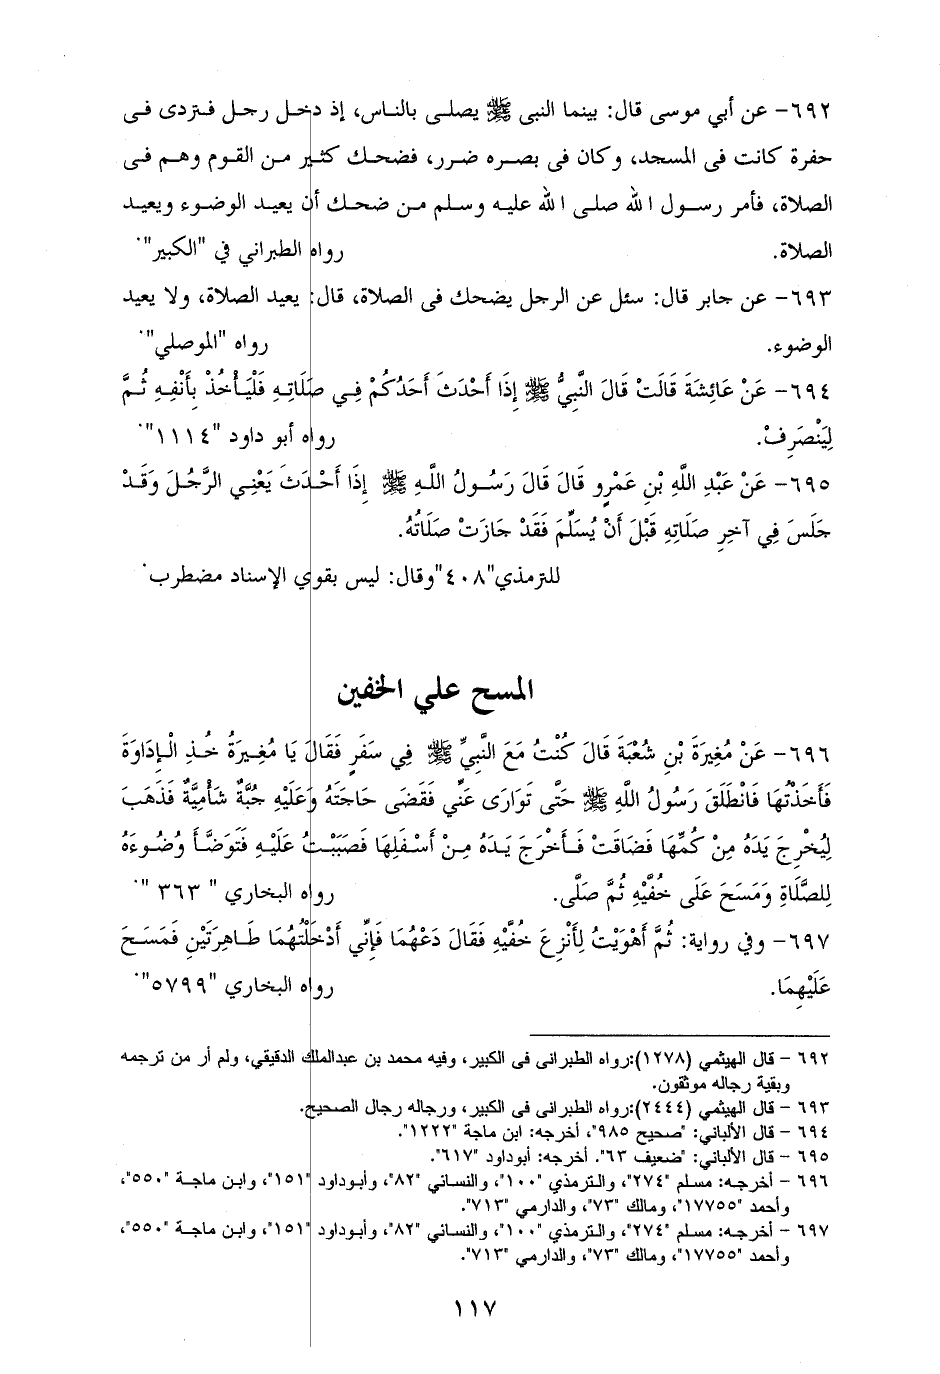 ٦٩٢- عن أبي موسى قال: بينما النبى ﷺ يصلى بالناس، إذ دخل رجل فتردى فى
حفرة كانت فى المسجد، وكان فى بصره ضرر، فضحك كثير من القوم وهم فى
الصلاة، فأمر رسول الله صلى الله عليه وسلم من ضحك أن يعيد الوضوء ويعيد
الصلاة. رواه الطبراني في "الكبير".
٦٩٣- عن جابر قال: سئل عن الرجل يضحك فى الصلاة، قال: يعيد الصلاة، ولا يعيد
الوضوء. رواه "الموصلي".
٦٩٤- عَنْ عَائِشَةَ قَالَتْ قَالَ النَّبِيُّ ﷺ إِذَا أَحْدَثَ أَحَدُكُمْ فِي صَلَاتِهِ فَلْيَأْخُذْ بِأَنْفِهِ ثُمَّ
لِيَنْصَرِفْ. رواه أبو داود "١١١٤".
٦٩٥- عَنْ عَبْدِ اللَّهِ بْنِ عَمْرٍو قَالَ قَالَ رَسُولُ اللَّهِ ﷺ إِذَا أَحْدَثَ يَعْنِي الرَّجُلَ وَقَدْ
جَلَسَ فِي آخِرِ صَلَاتِهِ قَبْلَ أَنْ يُسَلِّمَ فَقَدْ جَازَتْ صَلَاتُهُ.
للترمذي"٤٠٨"وقال: ليس بقوي الإسناد مضطرب.
المسح علي الخفين
٦٩٦- عَنْ مُغِيرَةَ بْنِ شُعْبَةَ قَالَ كُنْتُ مَعَ النَّبِيِّ ﷺ فِي سَفَرٍ فَقَالَ يَا مُغِيرَةُ خُذِ الْإِدَاوَةَ
فَأَخَذْتُهَا فَانْطَلَقَ رَسُولُ اللَّهِ ﷺ حَتَّى تَوَارَى عَنِّي فَقَضَى حَاجَتَهُ وَعَلَيْهِ جُبَّةٌ شَأْمِيَّةٌ فَذَهَبَ
لِيُخْرِجَ يَدَهُ مِنْ كُمِّهَا فَضَاقَتْ فَأَخْرَجَ يَدَهُ مِنْ أَسْفَلِهَا فَصَبَبْتُ عَلَيْهِ فَتَوَضَّأَ وُضُوءَهُ
لِلصَّلَاةِ وَمَسَحَ عَلَى خُفَّيْهِ ثُمَّ صَلَّى. رواه البخاري " ٣٦٣ ".
٦٩٧- وفي رواية: ثُمَّ أَهْوَيْتُ لِأَنْزِعَ خُفَّيْهِ فَقَالَ دَعْهُمَا فَإِنِّي أَدْخَلْتُهُمَا طَاهِرَتَيْنِ فَمَسَحَ
عَلَيْهِمَا. رواه البخاري "٥٧٩٩".
٦٩٢ - قال الهيثمي (١٢٧٨):رواه الطبرانى فى الكبير، وفيه محمد بن عبدالملك الدقيقي، ولم أر من ترجمه
وبقية رجاله موثقون.
٦٩٣ - قال الهيثمي (٢٤٤٤):رواه الطبرانى فى الكبير، ورجاله رجال الصحيح.
٦٩٤ - قال الألباني: "صحيح ٩٨٥"، أخرجه: ابن ماجة "١٢٢٢".
٦٩٥ - قال الألباني: "ضعيف ٦٣". أخرجه: أبوداود "٦١٧".
٦٩٦ - أخرجه: مسلم "٢٧٤"، والترمذي "١٠٠"، والنسائي "٨٢"، وأبوداود "١٥١"، وابن ماجة "٥٥٠"،
وأحمد "١٧٧٥٥"، ومالك "٧٣"، والدارمي "٧١٣".
٦٩٧ - أخرجه: مسلم "٢٧٤"، والترمذي "١٠٠"، والنسائي "٨٢"، وأبوداود "١٥١"، وابن ماجة "٥٥٠"،
وأحمد "١٧٧٥٥"، ومالك "٧٣"، والدارمي "٧١٣".
١١٧